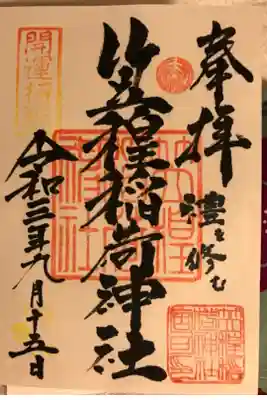 奉拝
禮を修む
笠䅣稲荷神社
開運
令和三年九月十五日